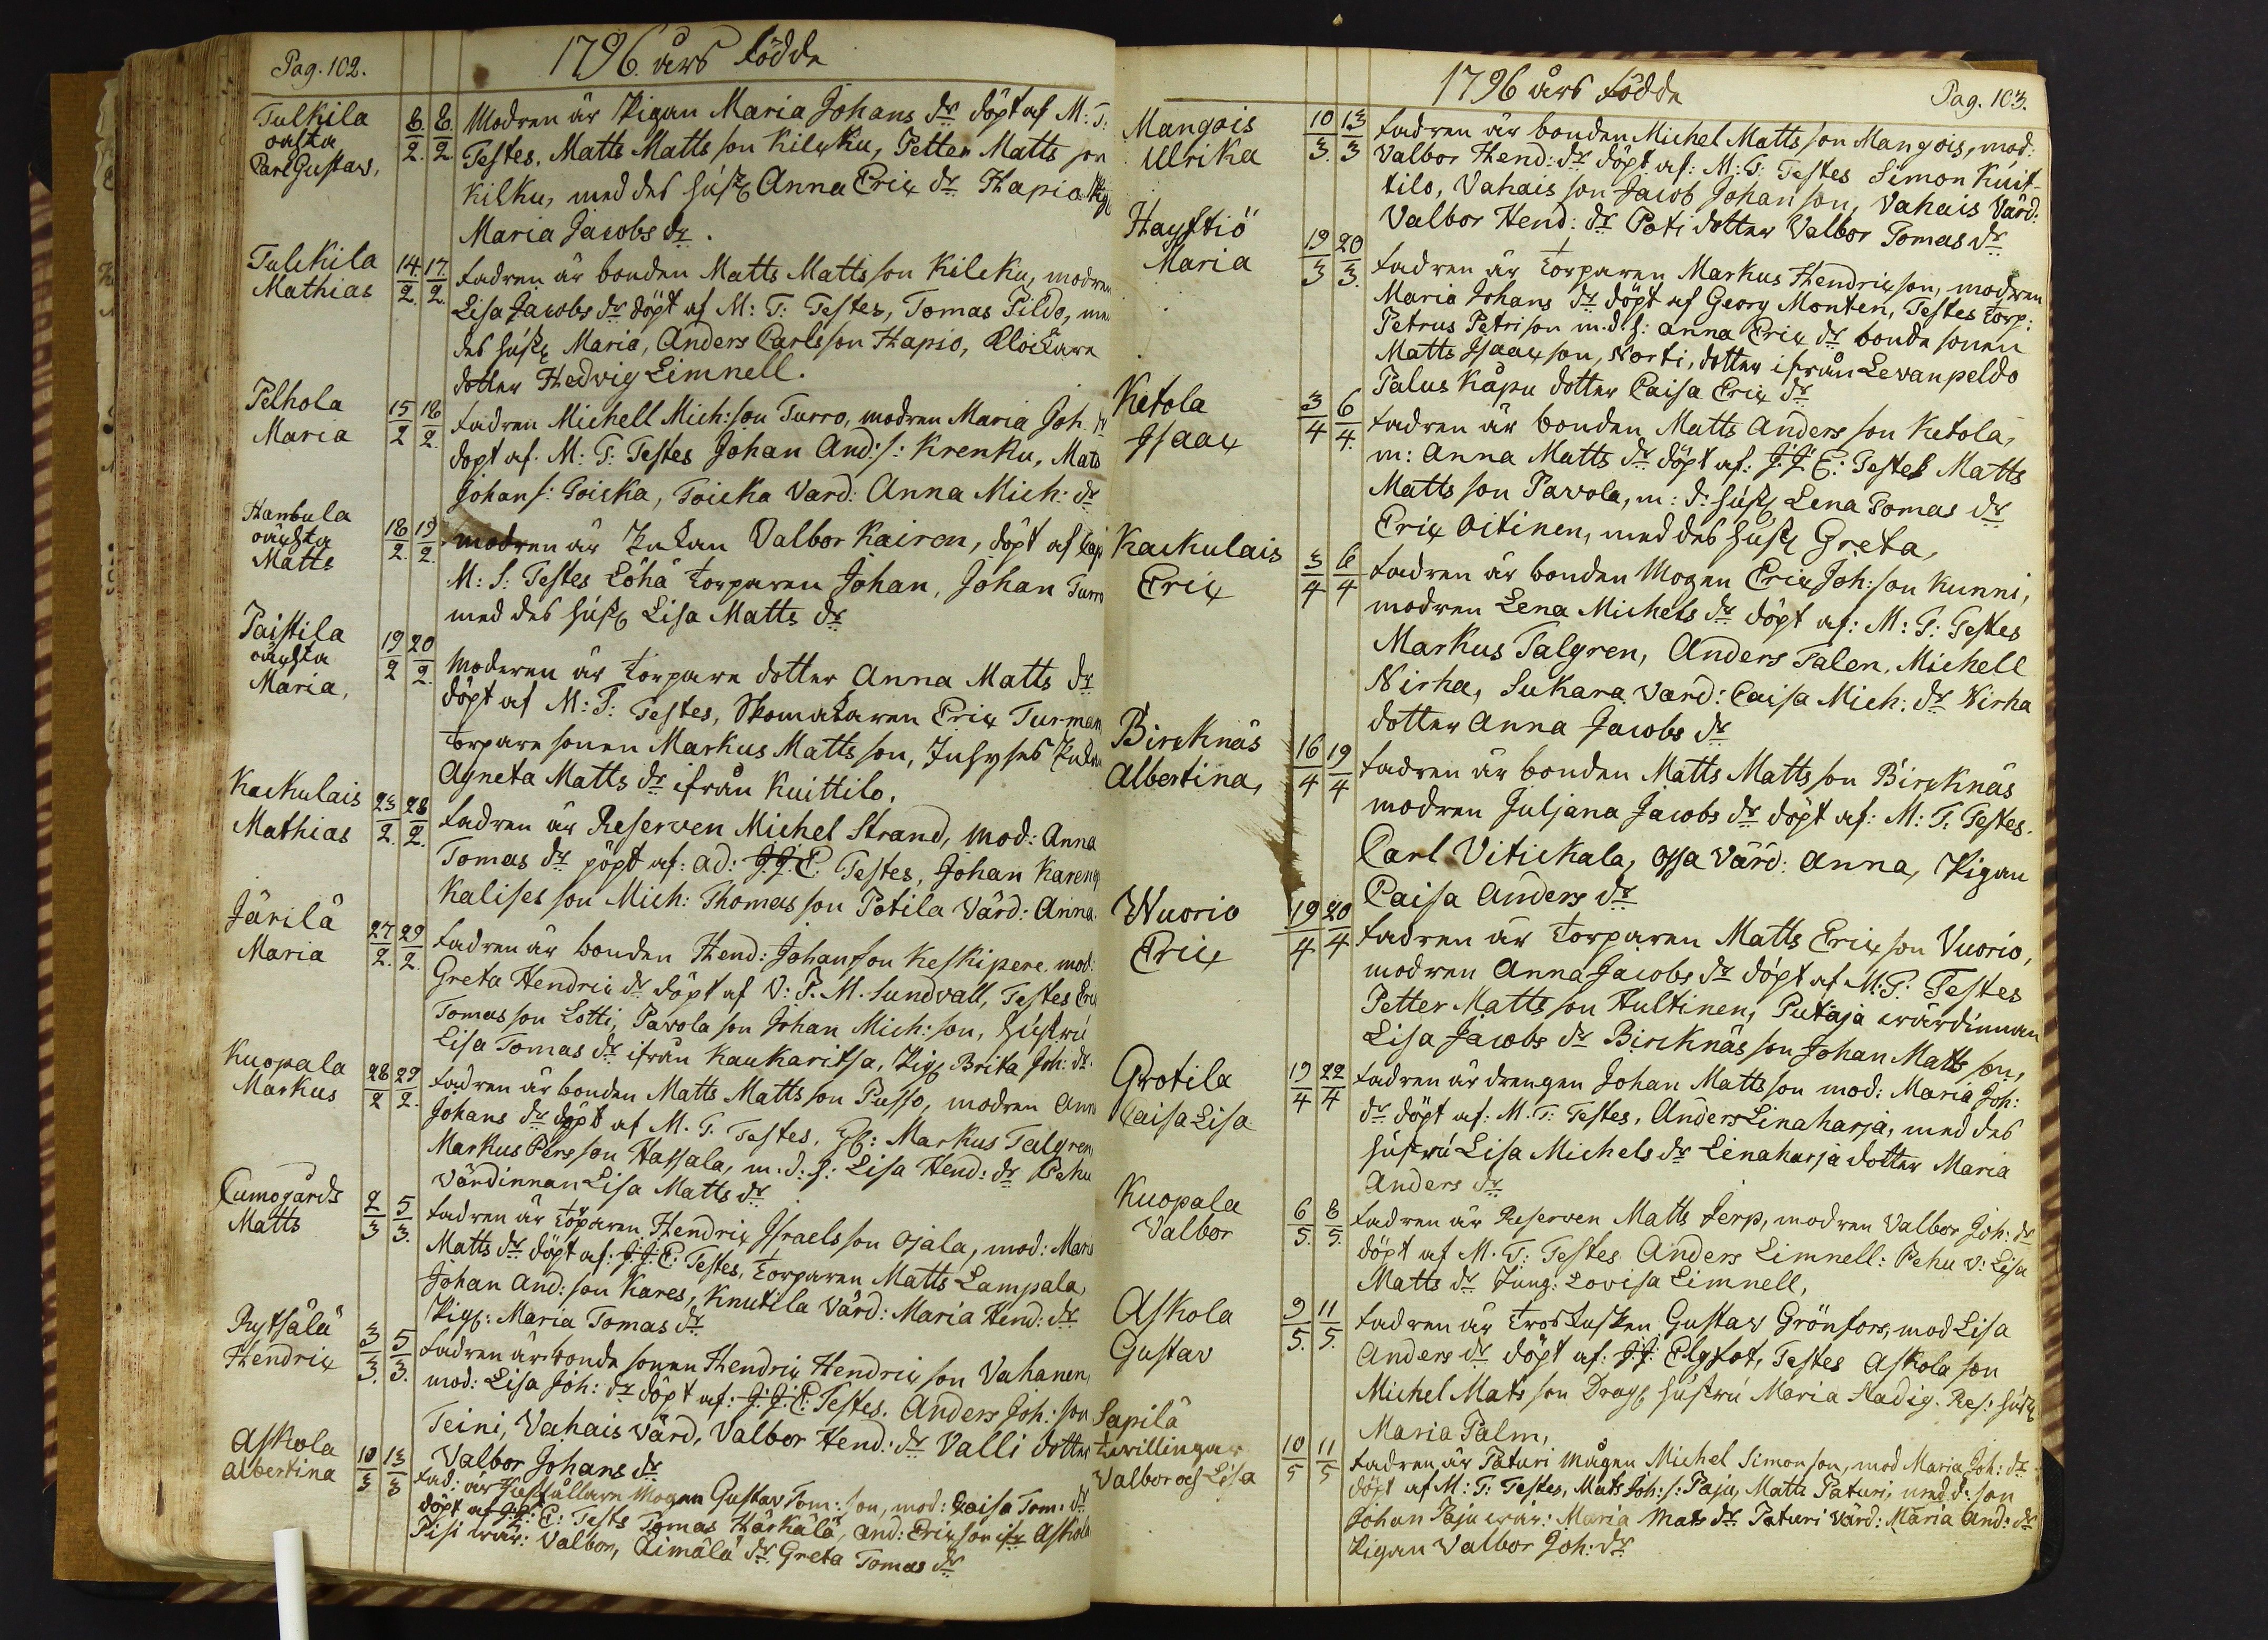 Pag. 102.
1796. års födde
Tulkila
oäkta
Carl Gustav,
8/2. 8/2.
Modren är Pigan Maria Johans dr döpt af M: T:
Testes, Matts Matts son Kilcku, Petter Matts son
Kilku, med des hust Anna Eric dr Hapio
Maria Jacobs dr.
Tulckila
Mathias
14/2. 17/2.
fadren är bonden Matts Matts son Kilcku, modren
Lisa Jacobs dr döpt af M: T: Testes, Tomas Pildo,
des hust Maria, Anders Carlsson Hapio, Klockare
dotter Hedvig Limnell.
Pelhola
Maria
15/2 18/2.
fadren Michell Mich: son Turro, modren Maria Joh. dr
döpt af. M: T: Testes Johan And: s: Krenku, Mats
Johan s: Toicka, Toicka Värd: Anna Mich: dr
oäckta
Matts
18/2. 19/2.
modren är Valbor Kairon, döpt af
M: S: Testes Löhä torparen Johan, Johan Turro
med des hust Lisa Matts dr
Paistila
oäckta
Maria,
19/2 20/2.
Moderen är torpare dotter Anna Matts dr
döpt af M: T: Testes, Skomakaren Eric Turman
torpare sonen Markus Matts son,
Agneta Matts dr ifrån Kuittilo.
Kackulais
Mathias
23/2. 28/2.
fadren är Reserven Michel Strand, mod: Anna
Tomas dr döpt af: ad: J. J. E. Testes, Johan
Kalises son Mich: Thomas son Potila Värd: Anna.
Järilä
Maria
27/2. 29/2.
fadren är bonden Hend: Johanson Keskipere. mod:
Greta Hendric dr döpt af V: P. M. Sundvall, Testes
Tomas son Lotti, Pavola son Johan Mich: son, hustru
Lisa Tomas dr ifrån Kaukaritsa, Pig Brita Joh: dr.
Kuopala
Markus
28/2 29/2.
fadren är bonden Matts Matts son Pusso, modren
Johans dr döpt af M. T. Testes, Markus Talgren,
Markus Pers son Hassala, m. d. h: Lisa Hend: dr Pehu
Värdinnan Lisa Matts dr
Cumogårds
Matts
2/3 5/3.
fadren är torparen Hendric Israels son Ojala, mod: Maria
Matts dr döpt af: J. J. E: Testes, torparen Matts Lampala,
Johan And: son Kares, Knutila Värd: Maria Hend: dr
Pig: Maria Tomas dr
Rytsälä
Hendric
3/3. 5/3.
fadren är bonde sonen Hendric Hendric son Vahanen,
mod: Lisa Joh: dr döpt af: J. J. E: Testes. Anders Joh: son
Teini, Vahais Värd, Valbor Hend: dr Valli dotter
Valbor Johans dr
Askola
Albertina
10/3 13/3
fad: är Mogen Gustav Tom: son, mod: Caisa Tom: dr
döpt af J. J: E: Tests Tomas Härkälä, And: Eric son Askola
Pisi wär: Valbor, dr Greta Tomas dr
1796 års födde
Pag. 103.
Mangois
Ulrika
10/3. 13/3
fadren är bonden Michel Matts son Mangois, mod:
Valbor Hend: dr döpt af: M: T: Testes Simon Kuit-
tilo, Vahais son Jacob Johan son, Vahais Värd:
Valbor Hend: dr Poti dotter Valbor Tomas dr
Maria
19/3 20/3.
fadren är torparen Markus Hendric son, modren
Maria Johans dr döpt af Georg Monten, Testes torp:
Petrus Petri son m. d. h: anna Eric dr bonde sonen
Matts Isaac son, Norti, dotter ifrån Levanpeldo
Palus Kåpu dotter Caisa Eric dr
Ketola
Isaac
3/4 6/4.
fadren är bonden Matts Anders son Ketola,
m: Anna Matts dr döpt af: J. J. E: Testes Matts
Matts son Pavola, m: d: hust Lena Tomas dr
Eric Oitinen, med des hust Greta,
Kackulais
Eric
3/4 6/4
fadren är bonden Mogen Eric Joh: son Kunni,
modren Lena Michels dr döpt af: M: T: Testes
Markus Talgren, Anders Talen, Michell
Nirha, Sukara Värd: Caisa Mich: dr Nirha
dotter Anna Jacobs dr
Bircknäs
Albertina,
16/4 19/4
fadren är bonden Matts Matts son Bircknäs
modren Juljana Jacobs dr döpt af: M: T: Testes.
Carl Vitickala, Ossa Värd: Anna, Pigan
Caisa Anders dr
Wuorio
Eric
19/4 20/4
fadren är torparen Matts Eric son Vuorio,
modren Anna Jacobs dr döpt af M: T: Testes
Petter Matts son Hultinen, Putaja wärdinnan
Lisa Jacobs dr Bircknäs son Johan Matts son,
Grotila
Caisa Lisa
19/4 22/4
fadren är drengen Johan Matts son mod: Maria Joh:
dr döpt af: M. T: Testes, Anders Linaharja, med des
hustru Lisa Michels dr Linaharja dotter Maria
Anders dr
Kuopala
Valbor
6/5. 8/5.
fadren är Reserven Matts Jerp, modren Valbor Joh: dr
döpt af M. T: Testes Anders Limnell: Pehu V: Lisa
Matts dr Jung: Lovisa Limnell,
Askola
Gustav
9/5. 11/5.
fadren är Gustav Grönfors, mod Lisa
Anders dr döpt af: J. J. Elgfot, Testes Askola son
Michel Mats son Drag hustru Maria Stadig. Res: hust
Maria Palm,
Sapilä
twillingar
Valbor och Lisa
10/5 11/5
fadren är Paturi mågen Michel Simon son, mod Maria Joh: dr
döpt af M: T: Testes, Mats Joh: s: Paju, Matts Paturi, med d: son
Johan Paju wär: Maria Mats dr Paturi Värd: Maria And: dr
Pigan Valbor Joh: dr